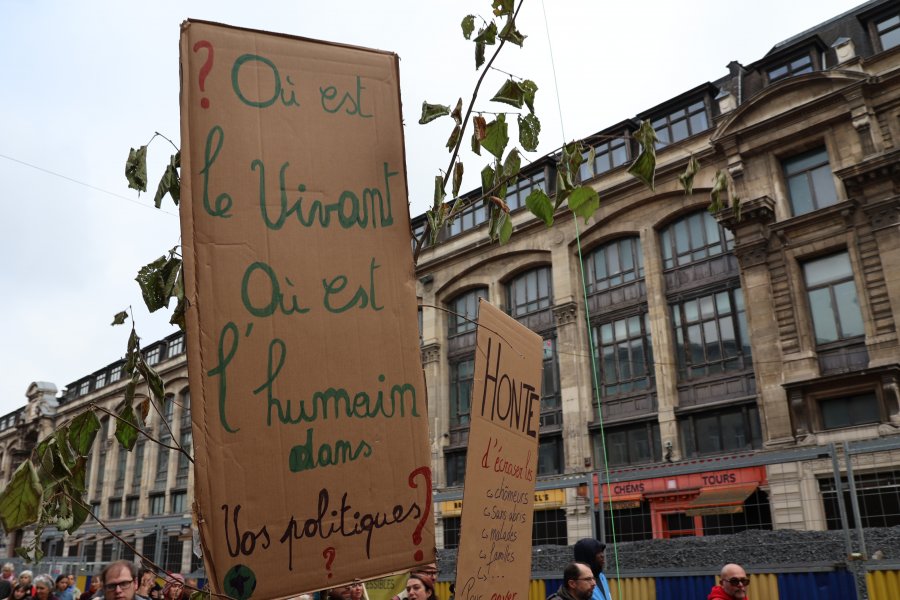 ? Où est
le Vivant
Où est
l'humain
dans
Vos politiques?
?
HONTE
d'écraser les
↳ chômeurs
↳ sans-abris
↳ malades
↳ familles
↳ ...
Pour payer
CHEMS TOURS